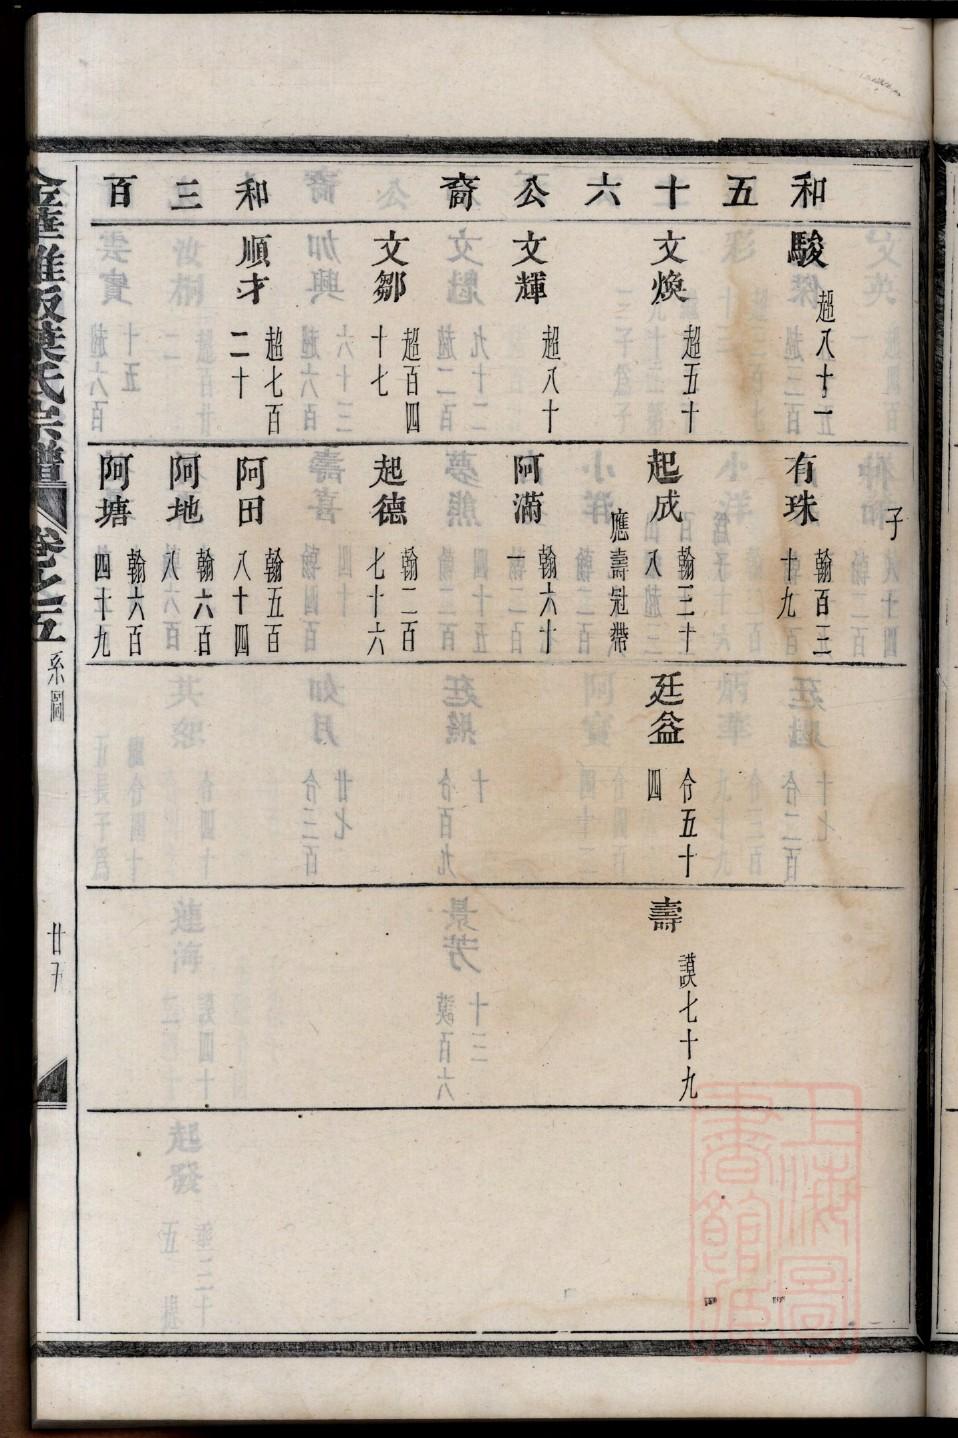 和五十六公裔
和三百
子
駿 超八十一
文煥 超五十
文輝 超八十
文鄒 超百四十七
順才 超七百二十
有珠 翰百三十九
起成 翰三十八
應壽冠帶
阿滿 翰六十一
起德 翰二百七十六
阿田 翰五百八十四
阿地 翰六百八
阿塘 翰六百四十九
廷益 令五十四
壽 謨七十九
葉氏宗譜
卷之五
系圖
上海圖書館藏